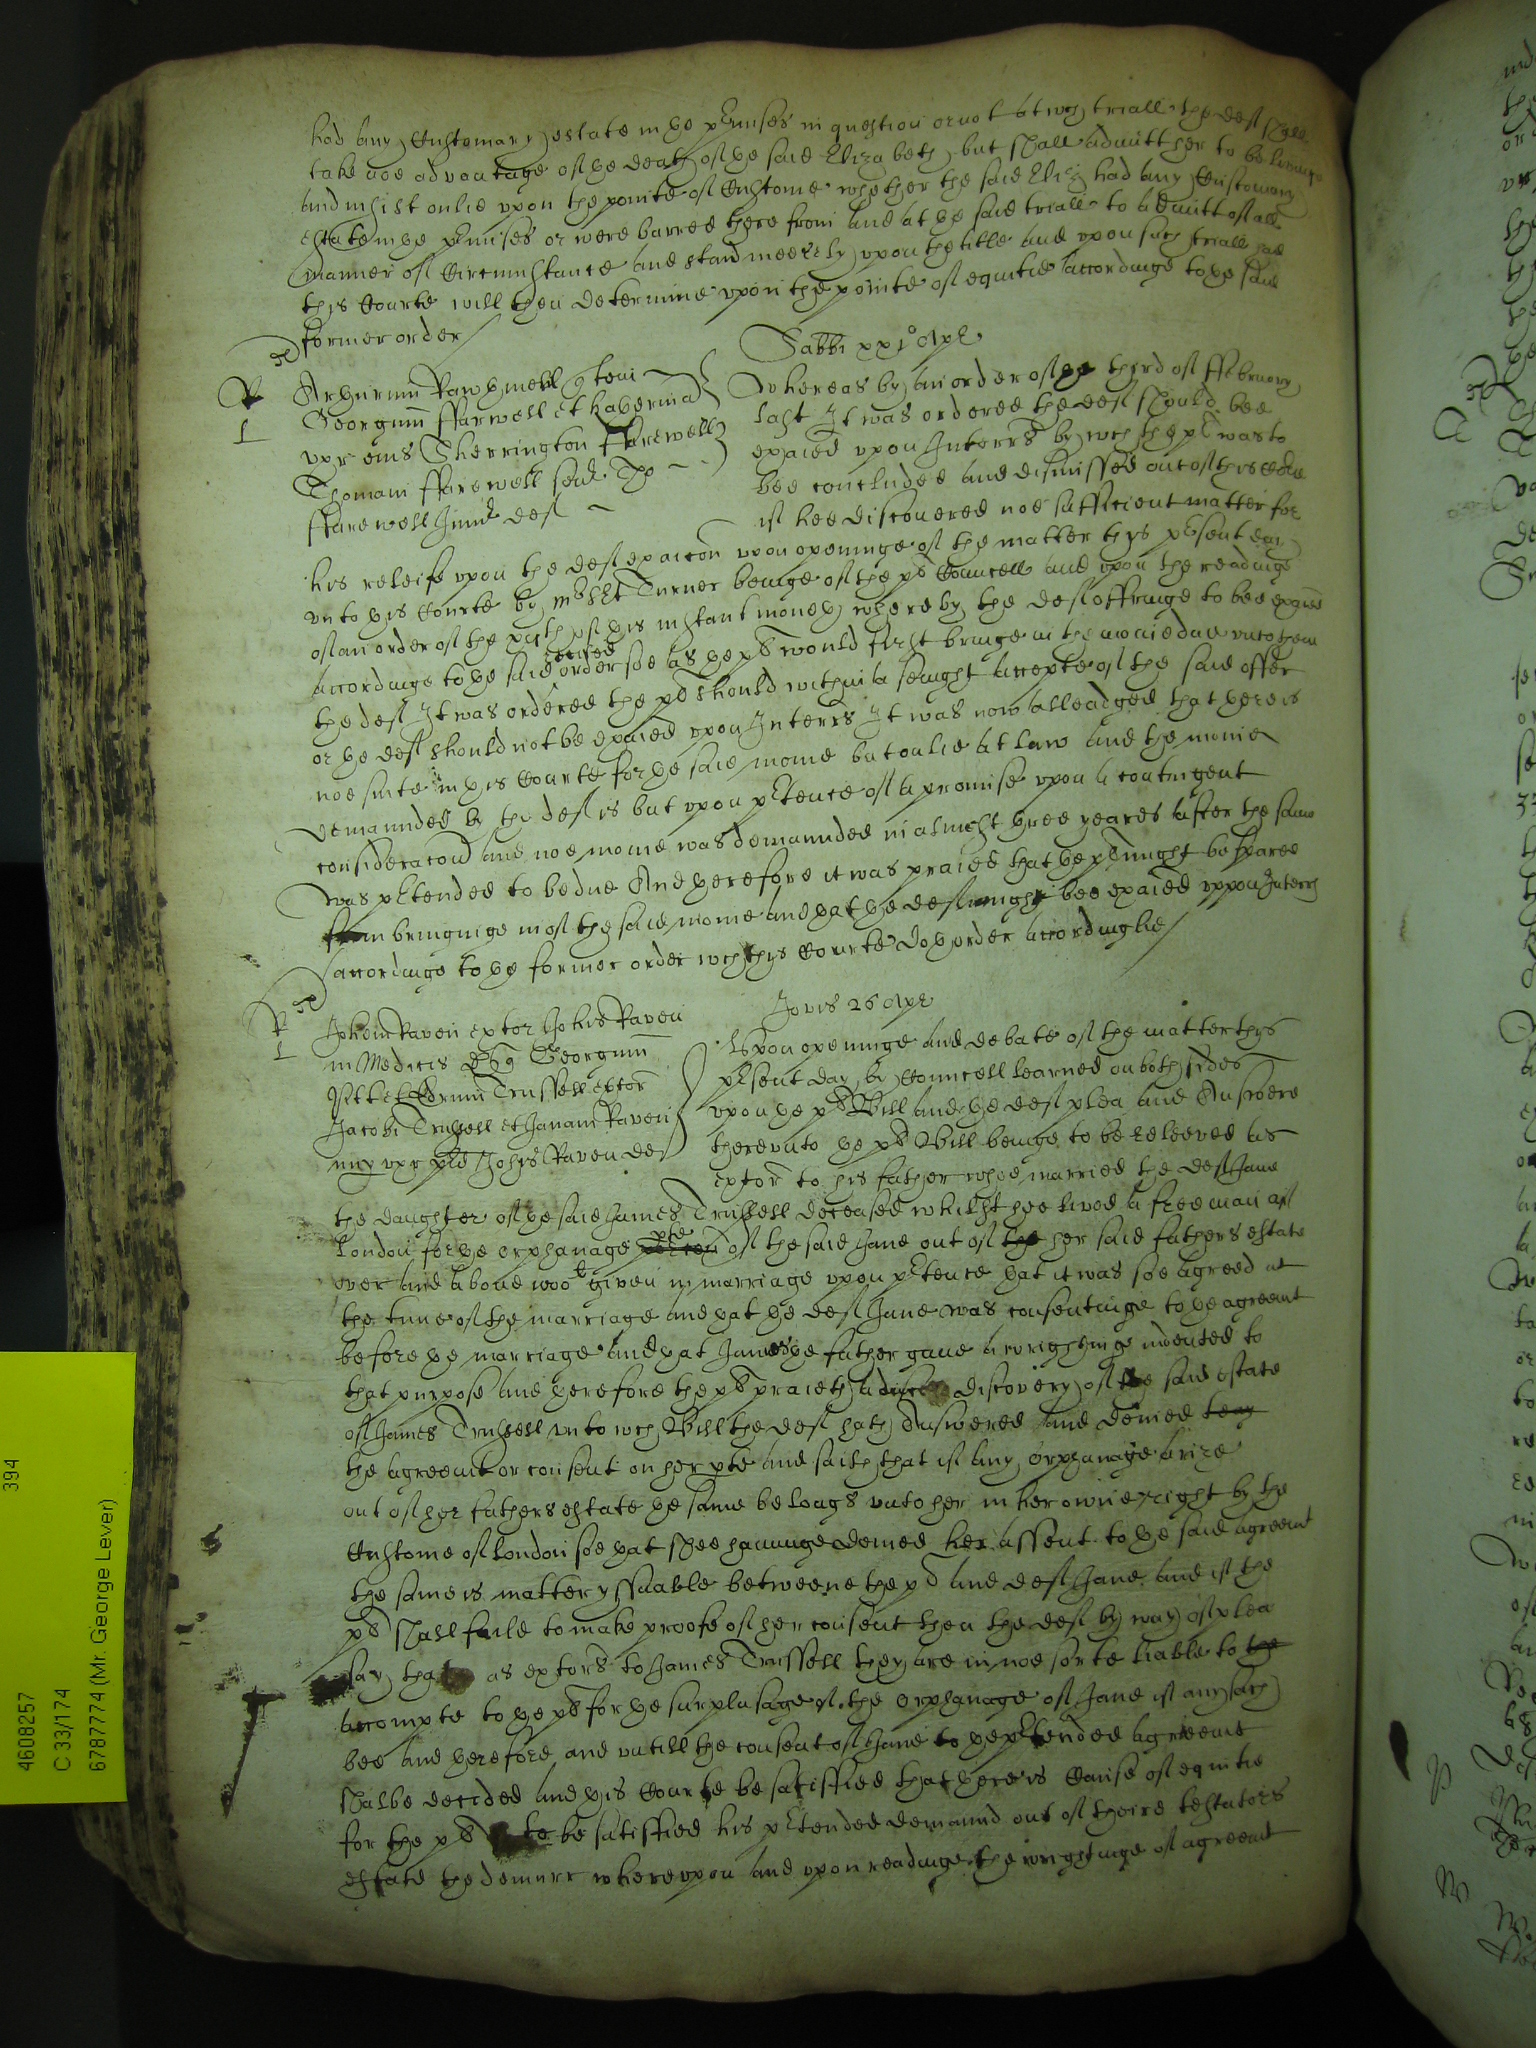 had any Customary estate in ye pmisses in question or not at wch triall the deft shall
take noe advantage of ye death of ye said Elizabeth but shall admitt her to be livinge
and insist onlie upon the pointe of Custome whether the said Eliz had any Customary
estate in ye pmisses or were barred there from and at ye said triall to admitt of all
manner of Circumstance and stand meerely upon the title and upon such triall had
this Courte will then determine upon the pointe of equitie accordinge to ye said
former order
Sabbi xxjo Apr
R
L
Georgium ffarwell et
uxr eius Sherrington ffarewell
Thomam ffarewell senr
ffarewell Junr def
Whereas by an order of ye third of ffebruary
last It was ordered the deft should bee
exaied upon Interrs by wch the pl was to
bee concluded and dismissed out of this Courte
if hee discovered noe sufficient matter for
his releife upon the deft exaicon upon openinge of the matter this psent day
unto this Courte by Mr Turner beinge of the pls Councell and upon the readinge
of an order of the of this instant moneth whereby the deft offringe to bee exaied
accordinge to ye said recited order soe as ye pl would first bringe in the monie due unto them
the deft It was ordered the pl should within a seaught accepte of the said offer
or ye deft should not be exaied upon Interrs It was now alleadged that there is
noe suite in this Courte for ye said monie but onlie at law and the monie
demaunded by the deft is but upon ptence of a promise upon a contingent
consideracon and noe monie was demaunded in almost three yeares after the same
was ptended to be due And therefore it was praied that ye pl might be spared
from bringinge in of the said monie and yat ye deft might bee exaied uppon Interrs
accordinge to ye former order wch this Courte doth order accordinglie
Jovis 26 Apr
R
L
Johem Raven extor Johis Raven
in Medicis Georgium
Pitt et Edrum Trussell extor
Jacobi Trussell et Janam Raven
nup uxr pd Johis Raven def
Upon openinge and debate of the matter this
psent day by Councell learned on both sides
upon ye pls Bill and ye deft plea and Answere
thereunto ye pls Bill beinge to be releeved as
extor to his father whoe married the deft Jane
the daughter of ye said James Trussell deceased whilst hee lived a freeman of
London for ye orphanage pte of the said Jane out of the her said fathers estate
over and above given in marriage upon ptence yat it was soe agreed at
the time of the marriage and yat ye deft Jane was consentinge to ye agreemt
before ye marriage and yat James ye father gave a wrightinge indented to
that purpose and therefore the pl praieth a discovery of the said estate
of James Trussell unto wch Bill the deft hath Answered and denied
the agreemt or consent on her pte and saith that if any orphanage arize
out of her fathers estate ye same belongs unto her in her owne right by the
Custome of London soe yat shee havinge denied her assent to ye said agreemt
the same is matter yssuable betweene the pl and deft Jane and if the
pl shall faile to make proofe of her consent then the deft by way of plea
say that as extors to James Trussell they are in noe sorte liable to the
accompte to ye pl for ye surplusage of the orphanage of Jane if any such
bee and therefore and untill the consent of Jane to ye ptended agreemt
shalbe decided and this Courte be satisfied that there is Cause of equitie
for the pl to be satisfied his ptended demaund out of theire testators
estate the demurr whereupon and upon readinge the wrightinge of agreemt
394
4608257
C 33/174
6787774 (Mr. George Lever)